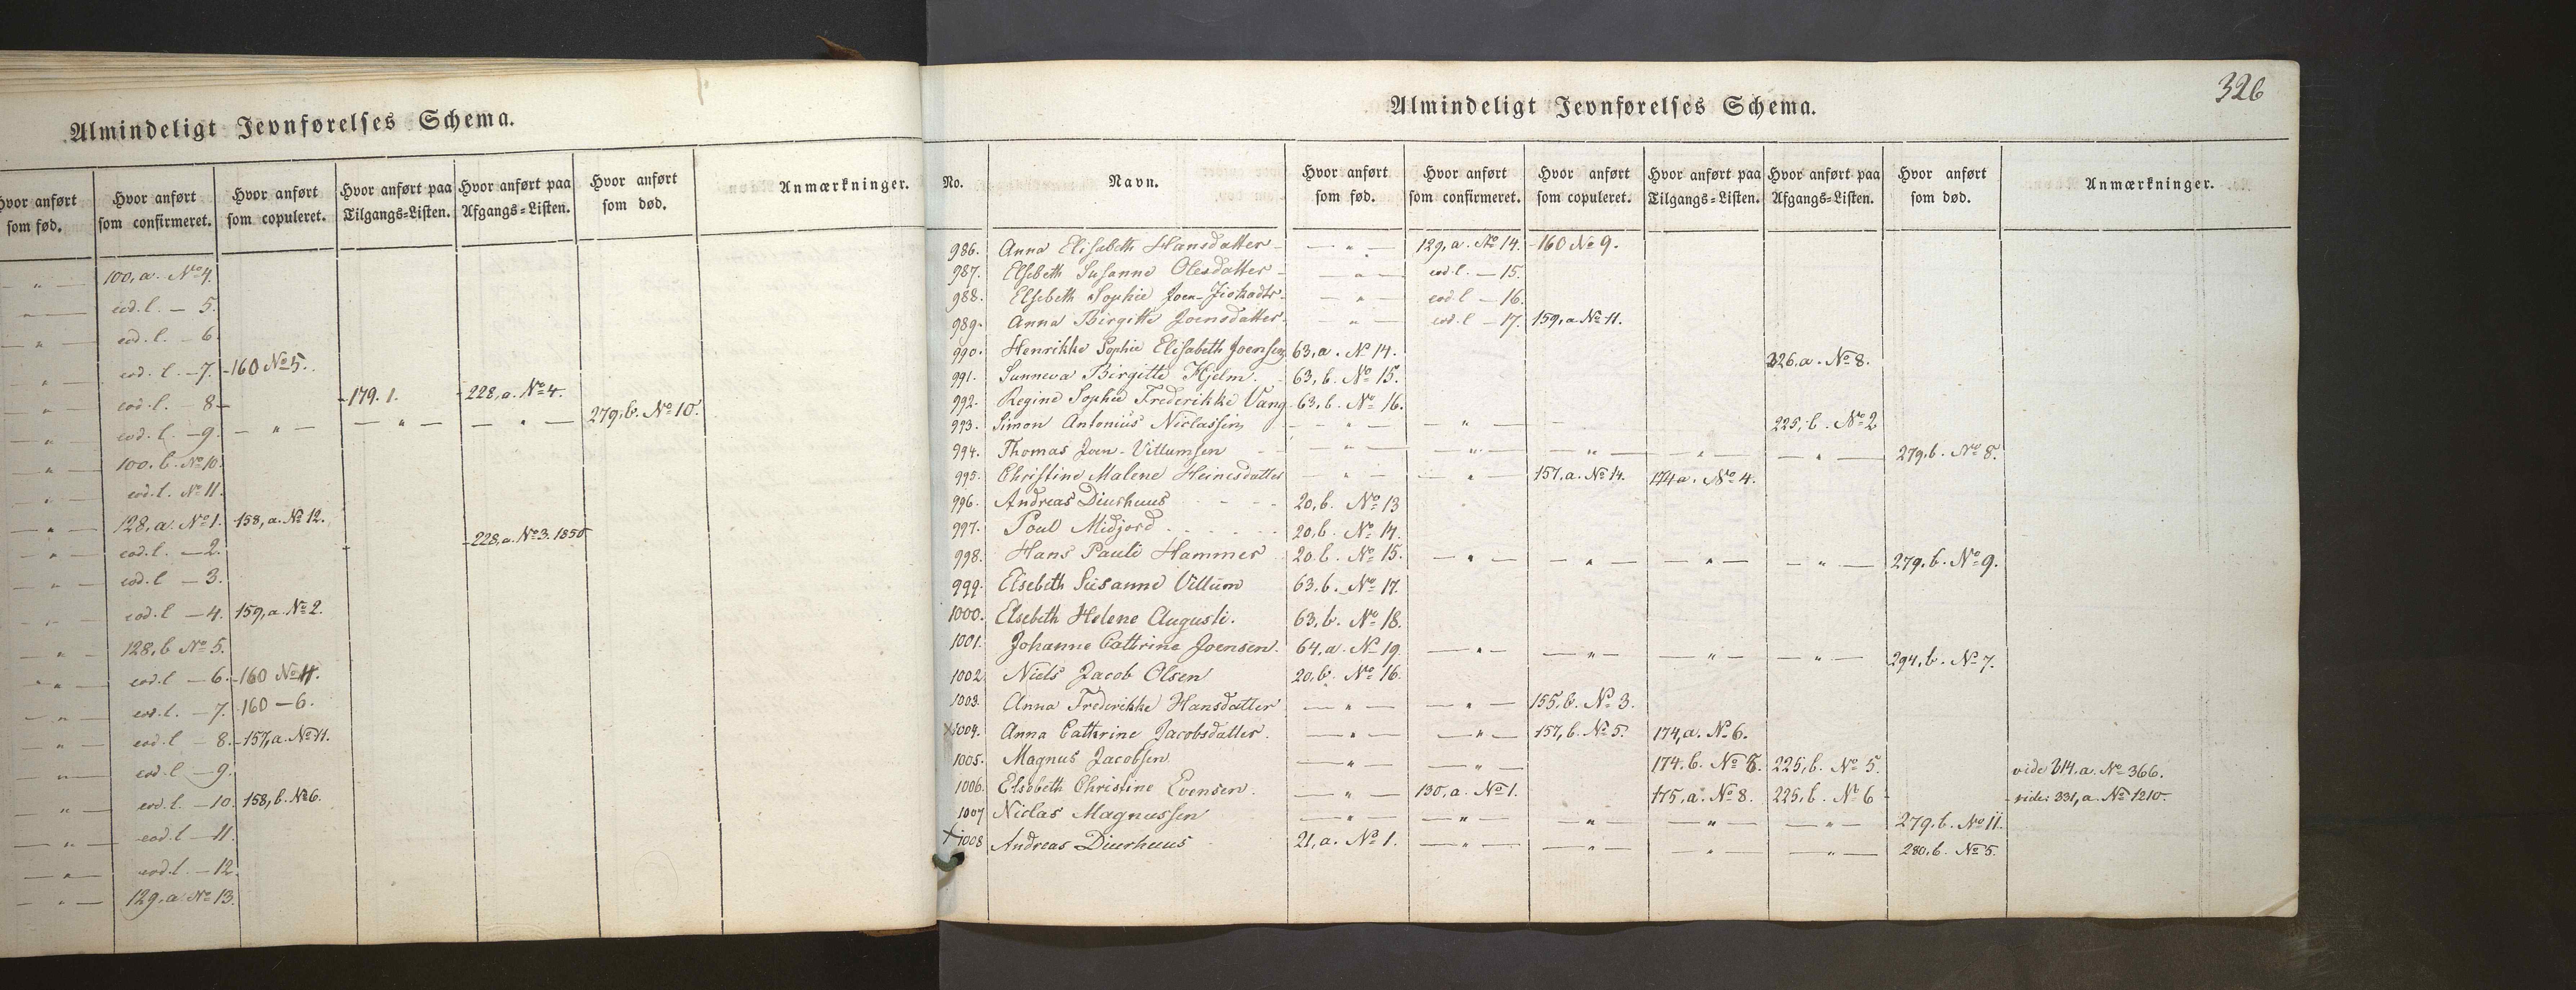 Almindeligt Jevnførelses Schema.
Hvor anført som fød. | Hvor anført som confirmeret. | Hvor anført som copuleret. | Hvor anført paa Tilgangs=Listen. | Hvor anført paa Afgangs=Listen. | Hvor anført som død. | Anmærkninger.
— " — 100, a. No 4.
— " — eod. l. — 5.
— " — eod. l. — 6.
— " — eod. l. — 7. 160 No 5.
— " — eod. l. — 8. 179. 1. 228, a. No 4.
— " — eod. l. — 9. — " — — " — — " — 279, b. No 10.
— " — 100, b. No 10.
— " — eod. l. No 11.
— " — 128, a. No 1. 158, a. No 12.
— " — eod. l. — 2. 228, a. No 3. 1850
— " — eod. l — 3.
— " — eod. l — 4. 159, a. No 2.
— " — 128, b No 5.
— " — eod. l — 6. 160 No 4.
— " — eod. l. — 7. 160 — 6.
— " — eod. l — 8. 157, a. No 11.
— " — eod. l — 9.
— " — eod. l. — 10. 158, b. No 6.
— " — eod. l — 11.
— " — eod. l — 12.
— " — 129, a. No 13.
326
Almindeligt Jevnførelses Schema.
No. | Navn. | Hvor anført som fød. | Hvor anført som confirmeret. | Hvor anført som copuleret. | Hvor anført paa Tilgangs=Listen. | Hvor anført paa Afgangs=Listen. | Hvor anført som død. | Anmærkninger.
986. Anna Elisabeth Hansdatter — " — 129, a. No 14. 160 No 9.
987. Elsebeth Susanne Olesdatter — " — eod. l. — 15.
988. Elsebeth Sophie Joen — " — eod. l — 16.
989. Anna Birgitte Joensdatter — " — eod. l — 17. 159, a. No 11.
990. Henrikke Sophie Elisabeth Joensen 63, a. No 14.
991. Sunneva Birgitte Hjelm. 63, b. No 15. 226, a. No 8.
992. Regine Sophie Frederikke Vang 63, b. No 16.
993. Simon Antonius Niclassen — " — — " — 225, b. No 2
994. Thomas Joen-Villumsen — " — — " — — " — — " — — " — 279, b. No 8.
995. Christine Malene Heinesdatter — " — — " — 157, a. No 14. 174 a. No 4.
996. Andreas Diurhuus 20, b. No 13
997. Poul Midjord 20, b. No 14.
998. Hans Pauli Hammer 20, b. No 15. — " — — " — — " — — " — 279, b. No 9.
999. Elsebeth Susanne Villum 63, b. No 17.
1000. Elsebeth Helene Augusti. 63, b. No 18.
1001. Johanne Cathrine Joensen. 64, a. No 19. — " — — " — — " — — " — 294, b. No 7.
1002. Niels Jacob Olsen 20, b. No 16.
1003. Anna Frederikke Hansdatter — " — — " — 155, b. No 3.
x 1004. Anna Cathrine Jacobsdatter. — " — — " — 157, b. No 5. 174, a. No 6.
1005. Magnus Jacobsen — " — — " — 174, b. No 8. 225, b. No 5. vide 314, a. No 366.
1006. Elsebeth Christine Evensen. — " — 130, a. No 1. 175, a. No 8. 225, b. No 6 vide: 331, a. No 1210.
1007 Niclas Magnussen — " — — " — — " — — " — — " — 279, b. No 11.
+ 1008 Andreas Diurhuus 21, a. No 1. — " — — " — — " — — " — 280, b. No 5.